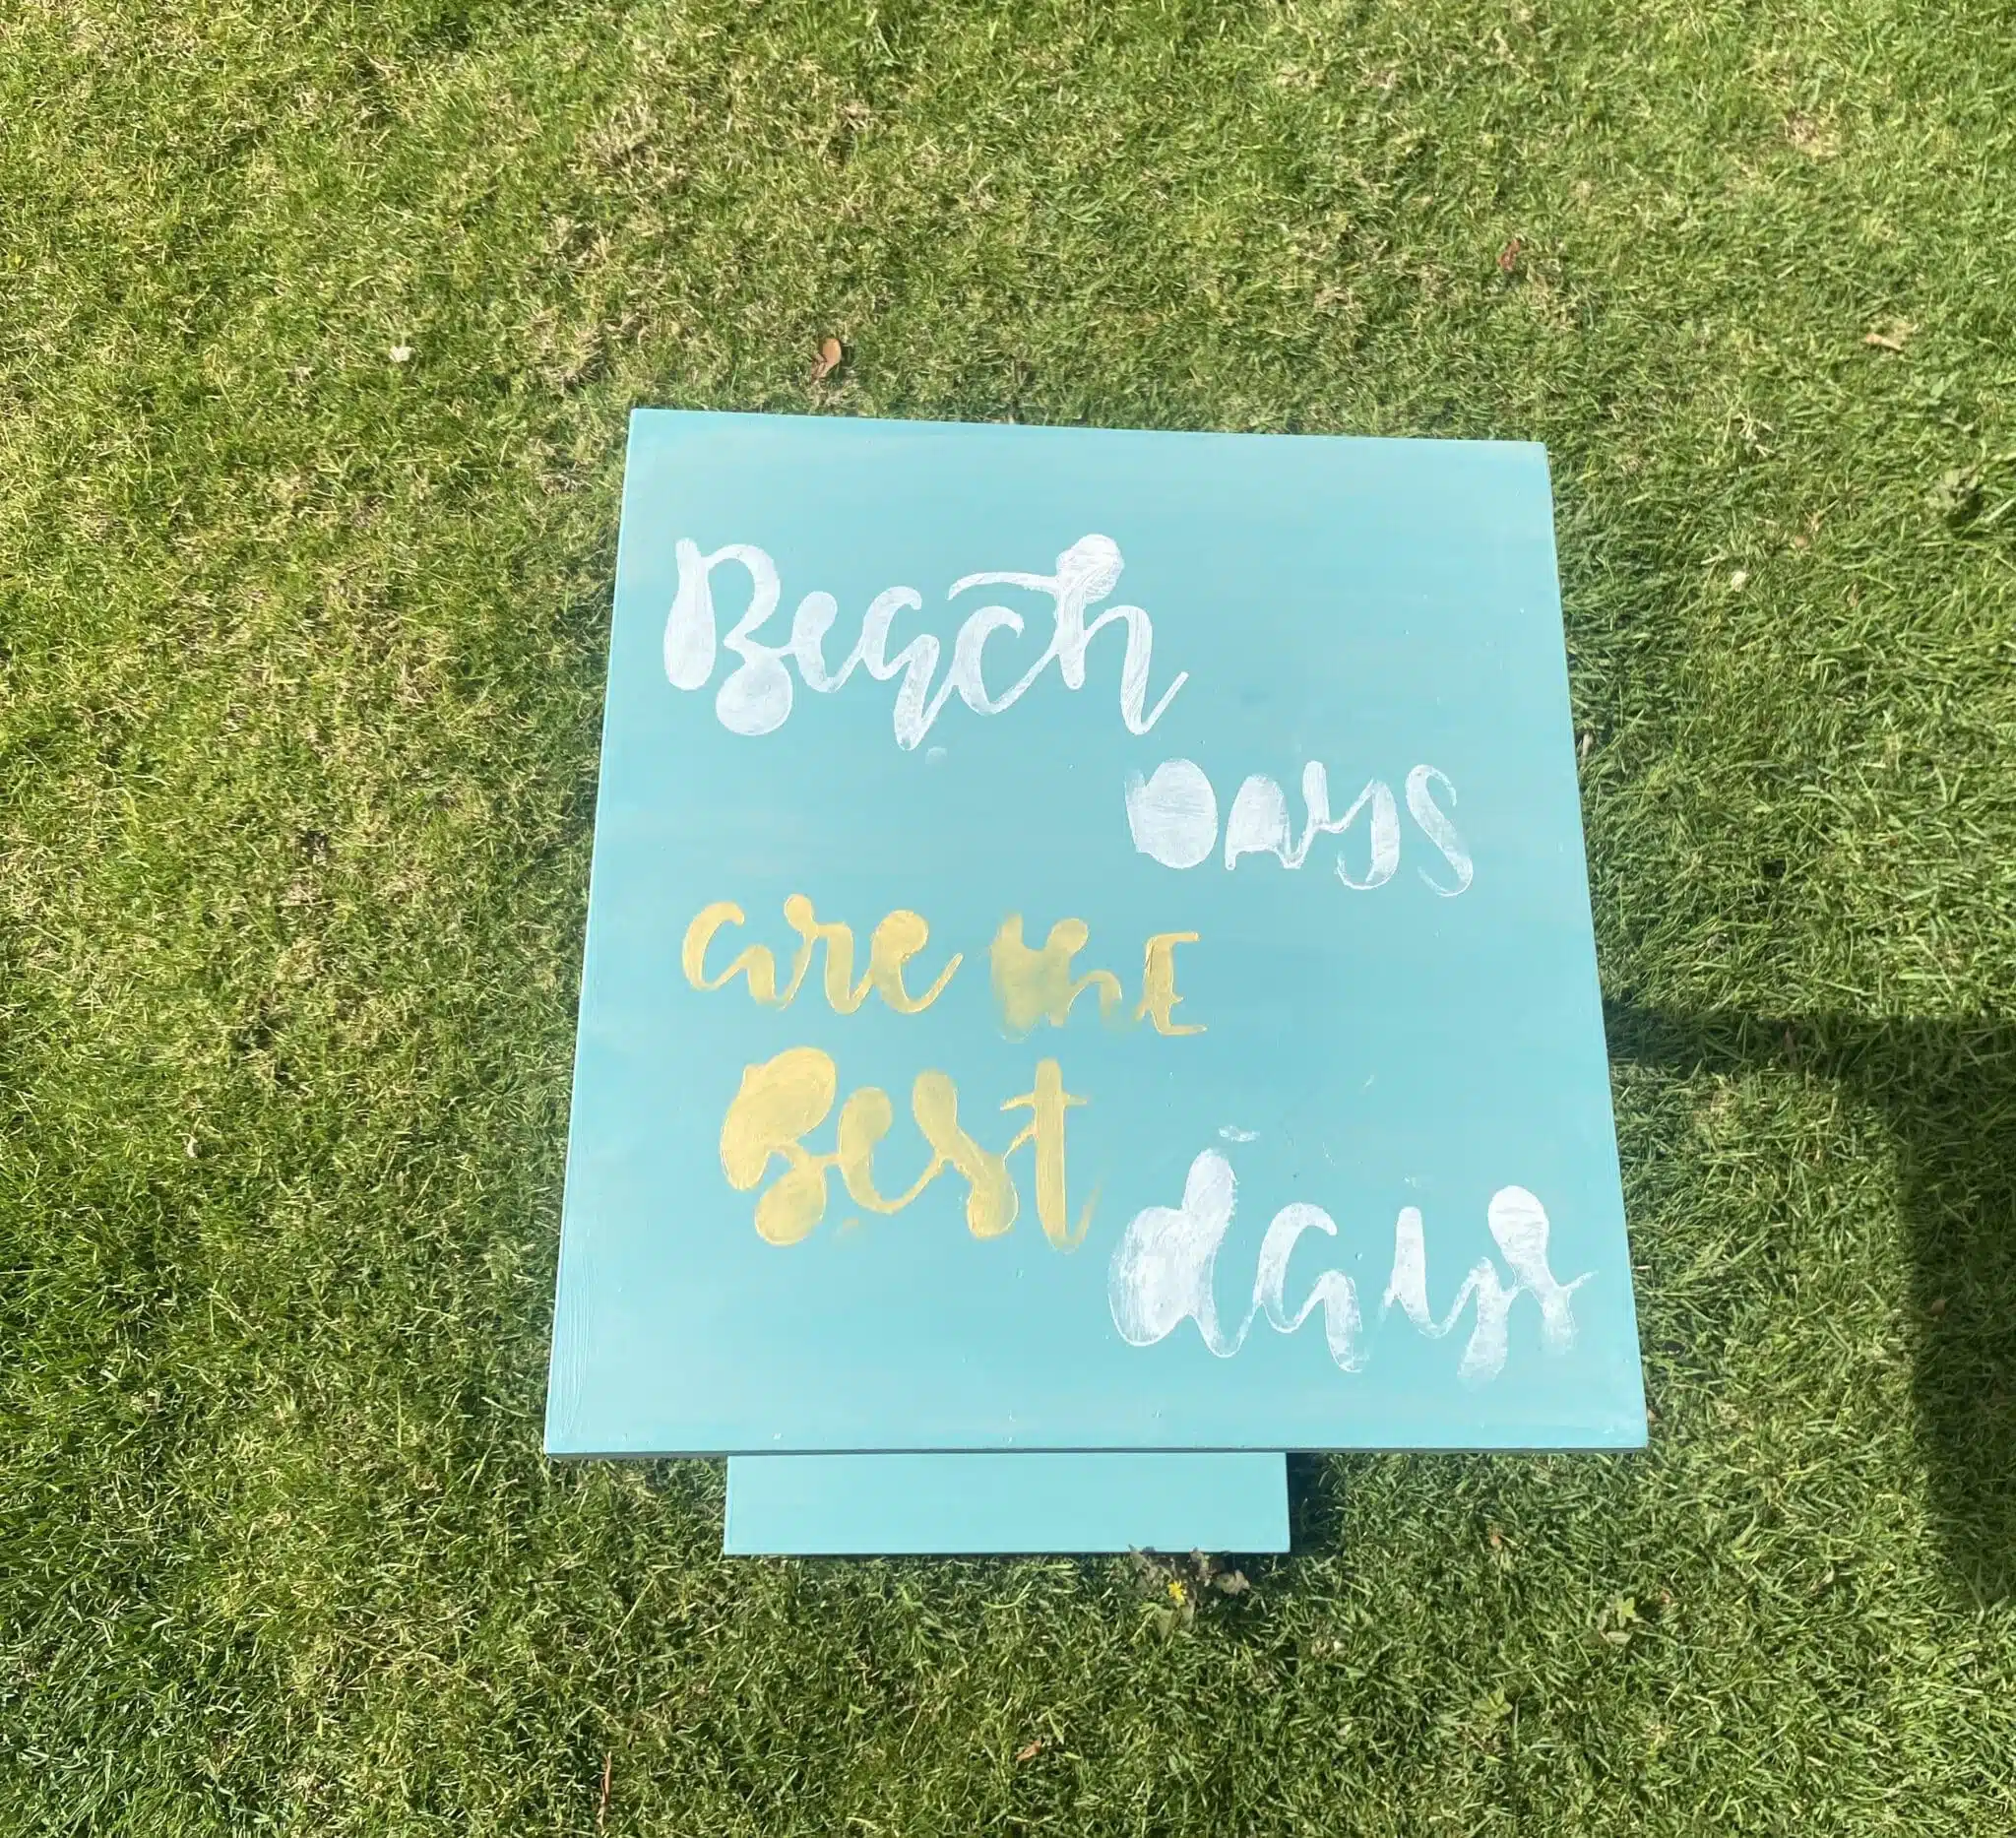 Beach
Days
are the
Best
days